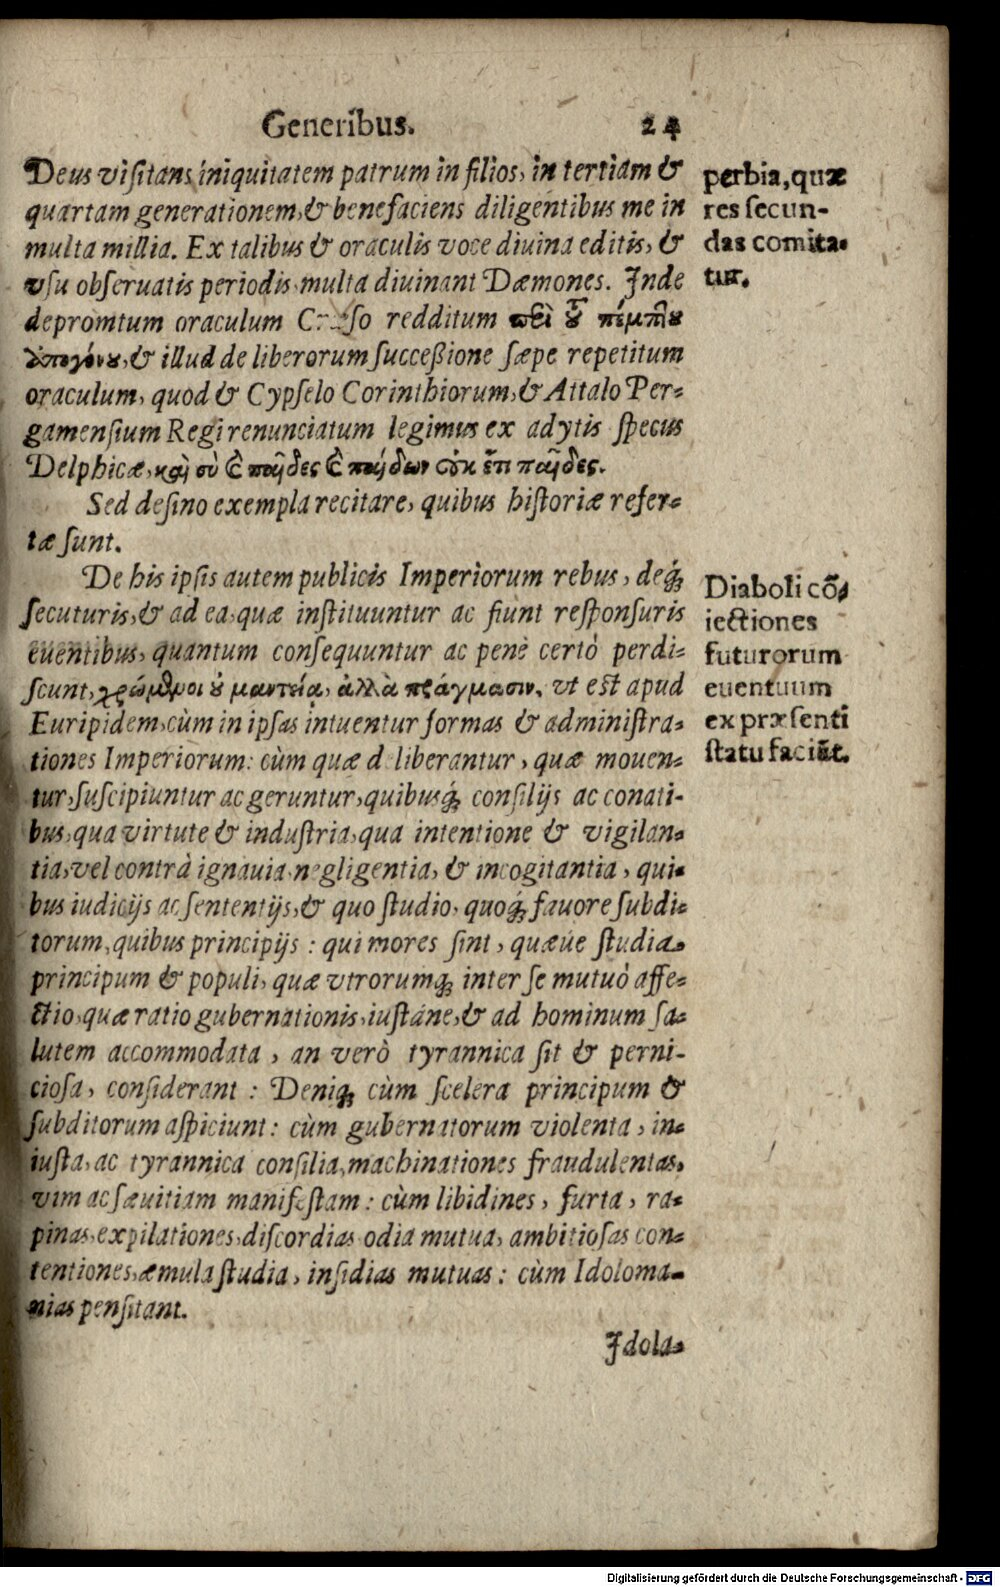 Generibus. 24
Deus visitans iniquitatem patrum in filios, in tertiam &
quartam generationem, & benefaciens diligentibus me in
multa millia. Ex talibus & oraculis voce diuina editis, &
vsu obseruatis periodis multa diuinant Dæmones. Inde
depromtum oraculum redditum πεὶ τȣ͂ πέμπτȣ
ἀπογόνȣ, & illud de liberorum successione sæpe repetitum
oraculum, quod & Cypselo Corinthiorum, & Attalo Per-
gamensium Regi renunciatum legimus ex adytis specus
Delphicæ, καὶ σὺ ϗ παῖδες ϗ παίδων οὐκ ἔτι παῖδες.
Sed desino exempla recitare, quibus historiæ refer-
tæ sunt.
De his ipsis autem publicis Imperiorum rebus, deq́;
secuturis, & ad ea, quæ instituuntur ac fiunt responsuris
euentibus, quantum consequuntur ac penè certò perdi-
scunt, χρώμενοι ȣ μαντεία, ἀλλὰ πράγμασιν, vt est apud
Euripidem, cùm in ipsas intuentur formas & administra-
tiones Imperiorum: cùm quæ deliberantur, quæ mouen-
tur, suscipiuntur ac geruntur, quibusq́; consilijs ac conati-
bus, qua virtute & industria, qua intentione & vigilan-
tia, vel contrà ignauia negligentia, & incogitantia, qui-
bus iudicijs ac sententijs, & quo studio, quoq́; fauore subdi-
torum, quibus principijs: qui mores sint, quæúe studia
principum & populi, quæ vtrorumq; inter se mutuò affe-
ctio, quæ ratio gubernationis, iustáne, & ad hominum sa-
lutem accommodata, an verò tyrannica sit & perni-
ciosa, considerant: Deniq; cùm scelera principum &
subditorum aspiciunt: cùm gubernatorum violenta, in-
iusta, ac tyrannica consilia, machinationes fraudulentas,
vim ac sæuitiam manifestam: cùm libidines, furta, ra-
pinas, expilationes, discordias odia mutua, ambitiosas con-
tentiones, æmula studia, insidias mutuas: cùm Idoloma-
nias pensitant.
Idola-
perbia, quæ
res secun-
das comita-
tur.
Diaboli cō-
iectiones
futurorum
euentuum
ex præsenti
statu faciāt.
Digitalisierung gefördert durch die Deutsche Forschungsgemeinschaft - DFG